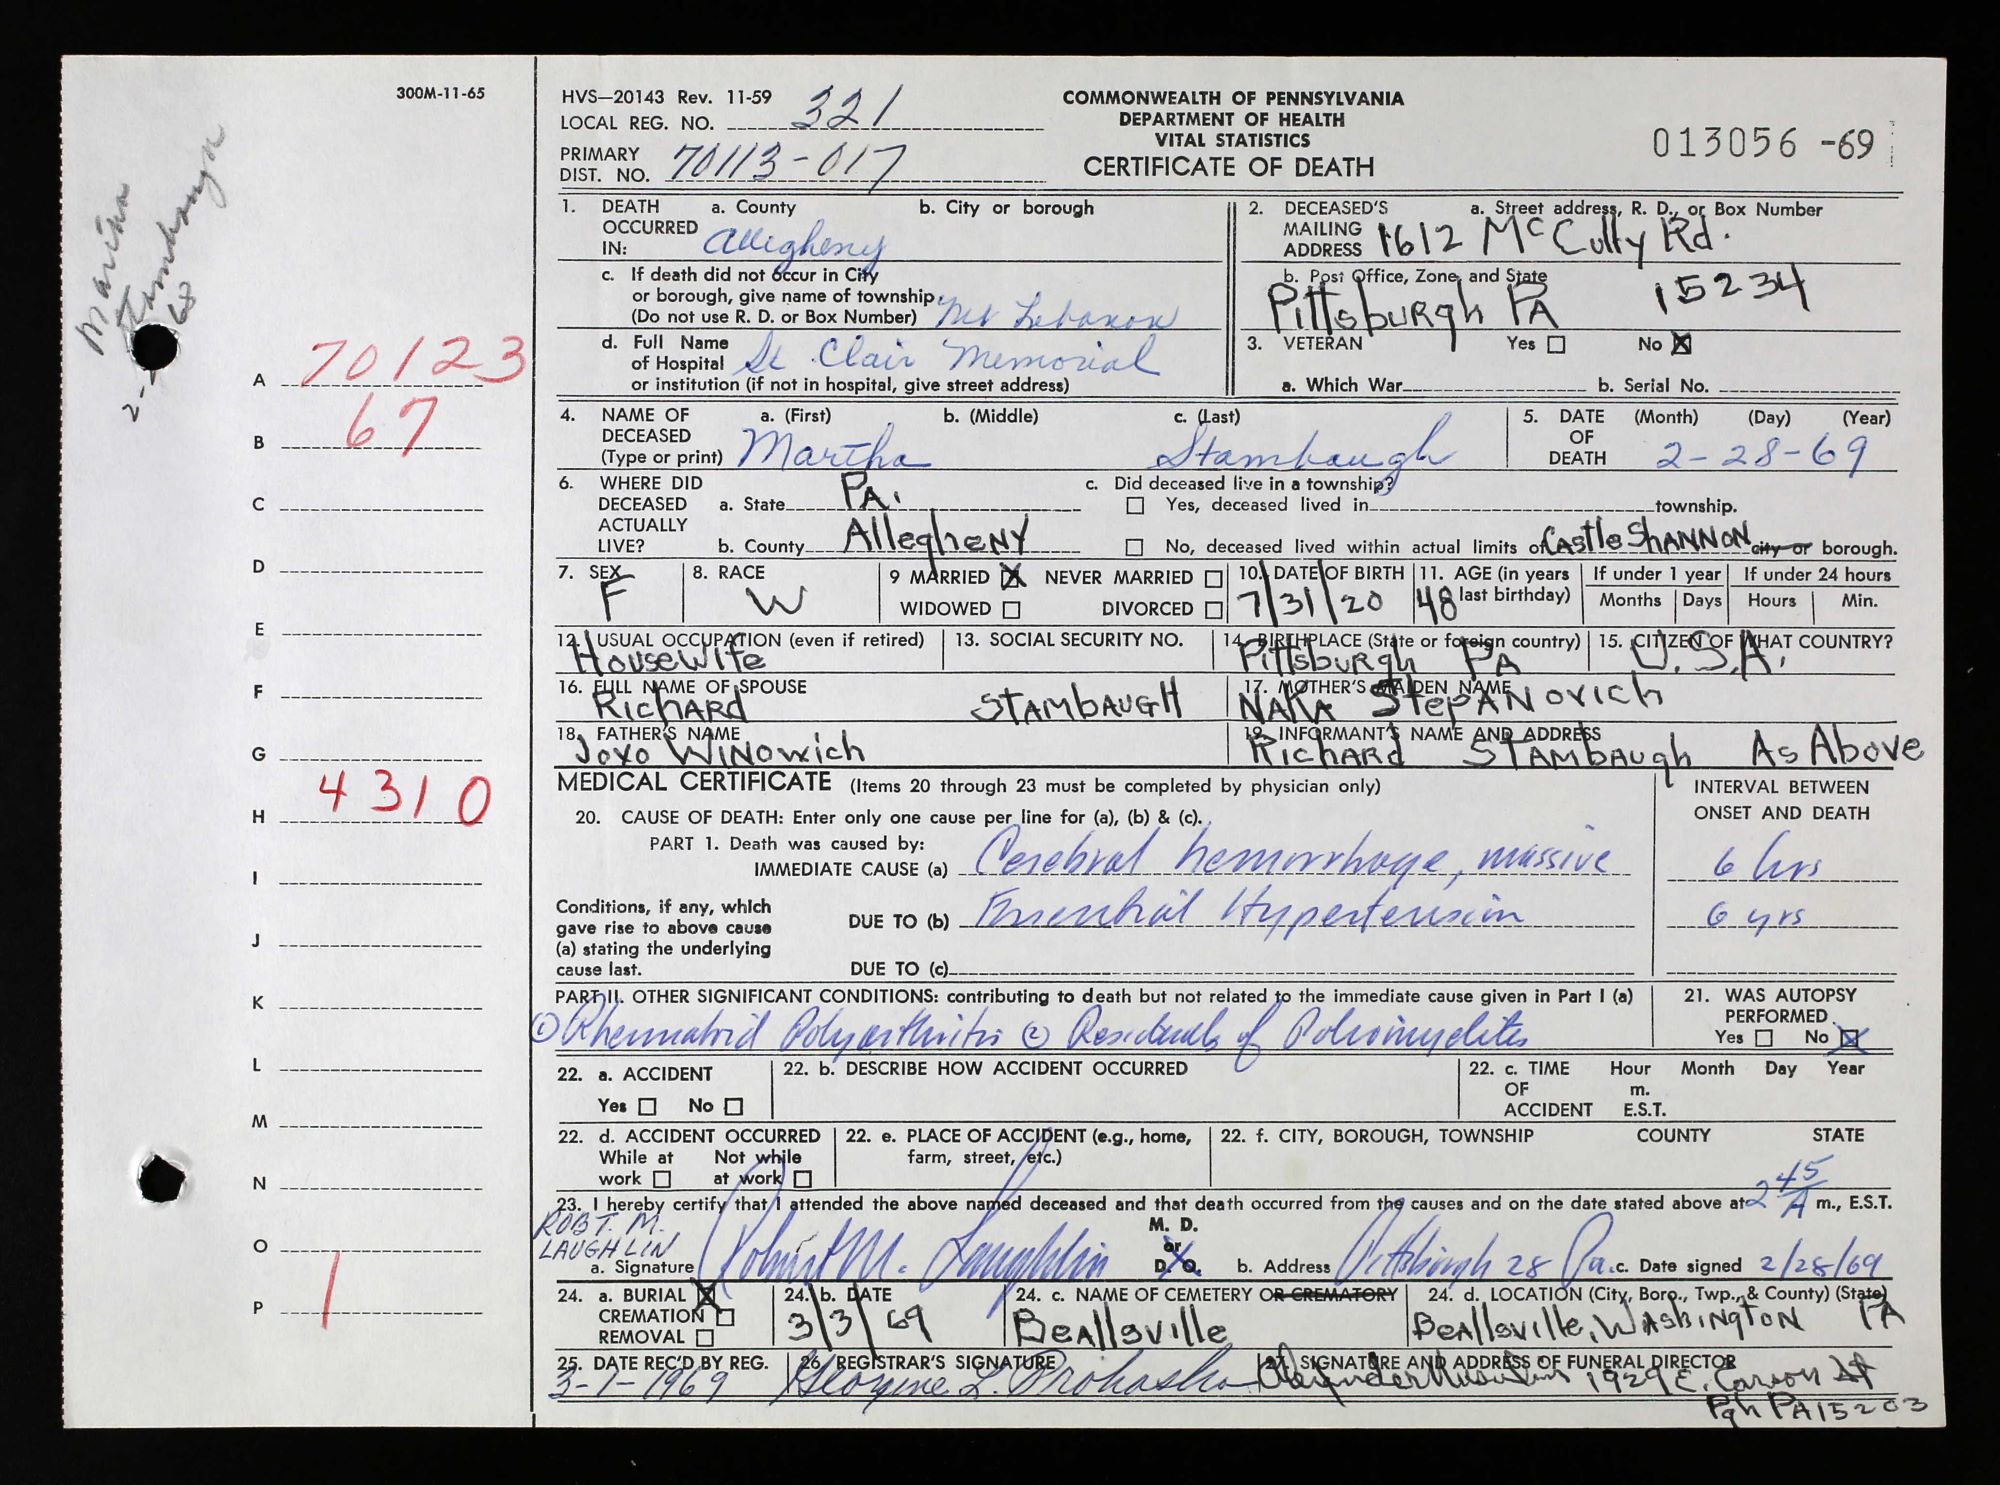 300M-11-65
Martha
Stambaugh
2-
68
A 70123
B 67
C
D
E
F
G
H 4310
I
J
K
L
M
N
O
P 1
HVS—20143 Rev. 11-59
LOCAL REG. NO. 321
PRIMARY
DIST. NO. 70113-017
COMMONWEALTH OF PENNSYLVANIA
DEPARTMENT OF HEALTH
VITAL STATISTICS
CERTIFICATE OF DEATH
013056 -69
1. DEATH OCCURRED IN: a. County b. City or borough
Allegheny
c. If death did not occur in City
or borough, give name of township.
(Do not use R. D. or Box Number) Mt Lebanon
d. Full Name
of Hospital St. Clair Memorial
or institution (if not in hospital, give street address)
2. DECEASED'S MAILING ADDRESS a. Street address, R. D., or Box Number
1612 McCully Rd.
b. Post Office, Zone, and State
Pittsburgh PA 15234
3. VETERAN Yes ☐ No ☒
a. Which War b. Serial No.
4. NAME OF DECEASED (Type or print) a. (First) b. (Middle) c. (Last)
Martha Stambaugh
5. DATE OF DEATH (Month) (Day) (Year)
2-28-69
6. WHERE DID DECEASED ACTUALLY LIVE? a. State PA.
b. County Allegheny
c. Did deceased live in a township?
☐ Yes, deceased lived in township.
☐ No, deceased lived within actual limits of Castle Shannon city or borough.
7. SEX F
8. RACE W
9 MARRIED ☒ NEVER MARRIED ☐
WIDOWED ☐ DIVORCED ☐
10. DATE OF BIRTH 7/31/20
11. AGE (in years last birthday) 48
If under 1 year If under 24 hours
Months Days Hours Min.
12. USUAL OCCUPATION (even if retired)
Housewife
13. SOCIAL SECURITY NO.
14. BIRTHPLACE (State or foreign country)
Pittsburgh PA
15. CITIZEN OF WHAT COUNTRY?
U.S.A.
16. FULL NAME OF SPOUSE
Richard Stambaugh
17. MOTHER'S MAIDEN NAME
NAKA StepANovich
18. FATHER'S NAME
Joxo Winowich
19. INFORMANT'S NAME AND ADDRESS
Richard Stambaugh As Above
MEDICAL CERTIFICATE (Items 20 through 23 must be completed by physician only)
INTERVAL BETWEEN
ONSET AND DEATH
20. CAUSE OF DEATH: Enter only one cause per line for (a), (b) & (c).
PART 1. Death was caused by:
IMMEDIATE CAUSE (a) Cerebral hemorrhage, massive 6 hrs
Conditions, if any, which
gave rise to above cause
(a) stating the underlying
cause last.
DUE TO (b) Essential Hypertension 6 yrs
DUE TO (c)
PART II. OTHER SIGNIFICANT CONDITIONS: contributing to death but not related to the immediate cause given in Part I (a)
① Rheumatoid Polyarthritis ② Residuals of Poliomyelitis
21. WAS AUTOPSY
PERFORMED
Yes ☐ No ☒
22. a. ACCIDENT
Yes ☐ No ☐
22. b. DESCRIBE HOW ACCIDENT OCCURRED
22. c. TIME OF ACCIDENT Hour Month Day Year
m.
E.S.T.
22. d. ACCIDENT OCCURRED
While at work ☐ Not while at work ☐
22. e. PLACE OF ACCIDENT (e.g., home,
farm, street, etc.)
22. f. CITY, BOROUGH, TOWNSHIP COUNTY STATE
23. I hereby certify that I attended the above named deceased and that death occurred from the causes and on the date stated above at 2 45 A m., E.S.T.
ROBT. M.
LAUGHLIN
a. Signature Robert M. Laughlin M. D. or D. O.
b. Address Pittsburgh 28 Pa. c. Date signed 2/28/69
24. a. BURIAL ☒
CREMATION ☐
REMOVAL ☐
24. b. DATE
3/3/69
24. c. NAME OF CEMETERY OR CREMATORY
Beallsville
24. d. LOCATION (City, Boro., Twp., & County) (State)
Beallsville, Washington PA
25. DATE REC'D BY REG.
3-1-1969
26. REGISTRAR'S SIGNATURE
Georgine L. Prohaska
27. SIGNATURE AND ADDRESS OF FUNERAL DIRECTOR
1929 E. Carson St
Pgh PA 15203